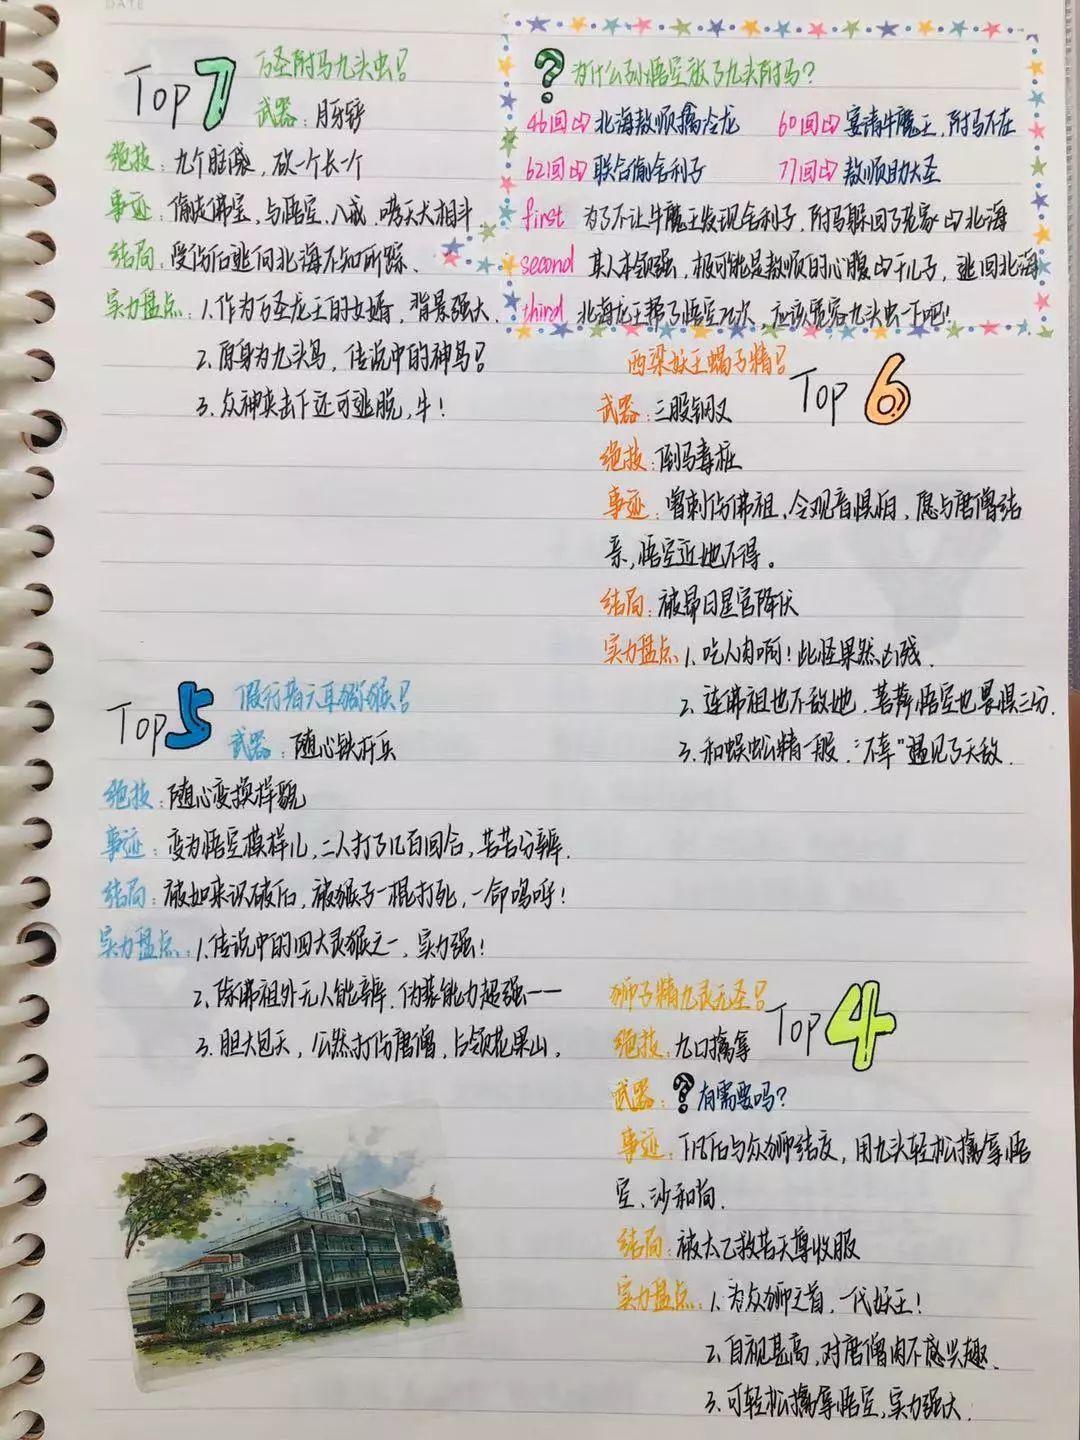 DATE
Top 7
万圣附马九头虫!
武器:月牙铲
绝技:九个脑袋,砍一个长一个
事迹:偷走佛宝,与悟空、八戒、哮天犬相斗
结局:受伤后逃向北海不知所踪.
实力盘点:1.作为万圣龙王的女婿,背景强大.
2.原身为九头鸟,传说中的神鸟!
3.众神夹击下还可逃脱,牛!
?为什么孙悟空放了九头附马?
46回⇨北海敖顺擒冷龙
60回⇨宴请牛魔王,附马不在
62回⇨联合偷舍利子
77回⇨敖顺助大圣
first 为了不让牛魔王发现舍利子,附马躲回了老家⇨北海
second 其人本领强,极可能是敖顺的心腹⇨干儿子,逃回北海
third 北海龙王帮了悟空2次,应该宽容九头虫一下吧!
西梁妖王蝎子精!
Top 6
武器:三股钢叉
绝技:倒马毒桩
事迹:曾刺伤佛祖,令观音惧怕,愿与唐僧结
亲,悟空近她不得。
结局:被昴日星官降伏
实力盘点 1.吃人肉啊!此怪果然凶残.
2.连佛祖也不敌她,菩萨悟空也畏惧三分.
3.和蜈蚣精一般,"不幸"遇见了天敌.
Top 5
假行者六耳猕猴!
武器:随心铁杆兵
绝技:随心变换样貌
事迹:变为悟空模样儿,二人打了几百回合,苦苦分辨.
结局:被如来识破后,被猴子一棍打死,一命呜呼!
实力盘点:1.传说中的四大灵猴之一,实力强!
2.除佛祖外无人能辨.伪装能力超强——
3.胆大包天,公然打伤唐僧,占领花果山.
狮子精九灵元圣!
Top 4
绝技:九口擒拿
武器:?有需要吗?
事迹:下凡后与众狮结交,用九头轻松擒拿悟
空、沙和尚.
结局:被太乙救苦天尊收服
实力盘点:1.为众狮之首,一代妖王!
2.自视甚高,对唐僧肉不感兴趣.
3.可轻松擒拿悟空,实力强大.